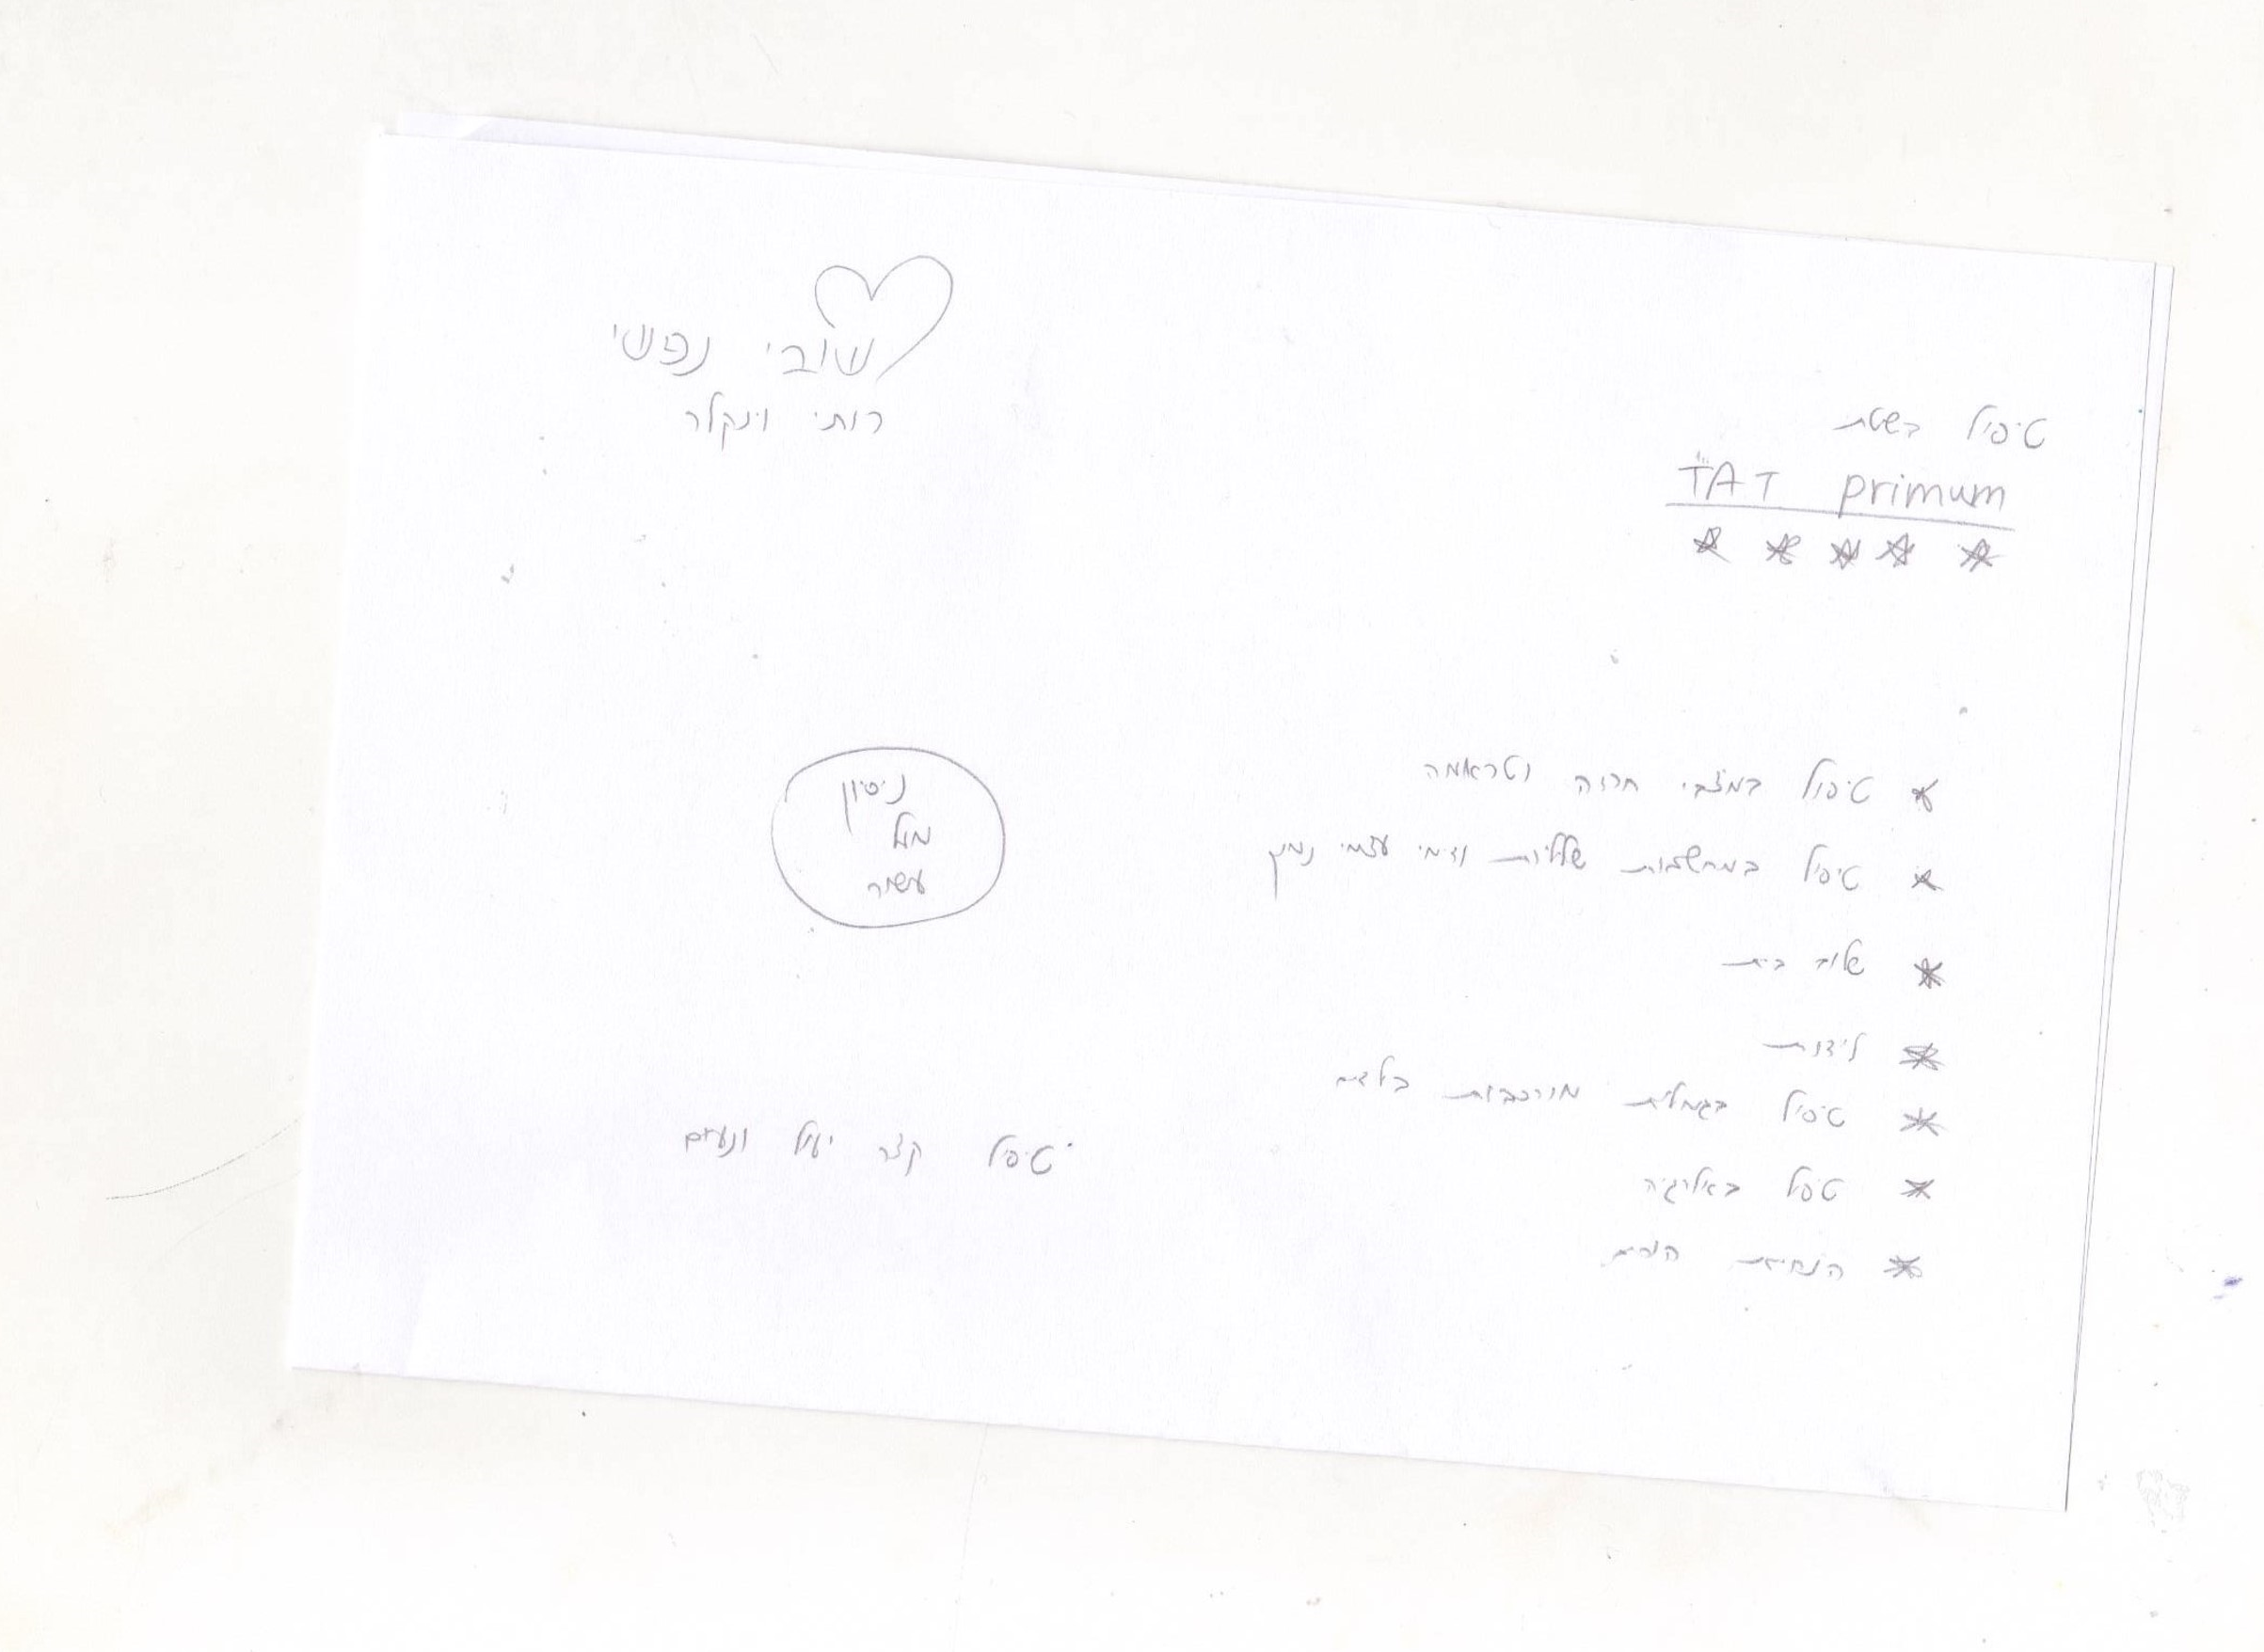 שובי נפשי
רותי וינקלר
טיפול בשיטת
TAT primum
טיפול במצבי חרדה וטראומה
טיפול במחשבות שליליות ודימוי עצמי נמוך
שלום בית
לידות
טיפול בגמילות מורכבות בילדים
טיפול באלרגיה
הנחיית הורים
ניסיון
מול
עשיר
טיפול קצר יעיל ונעים